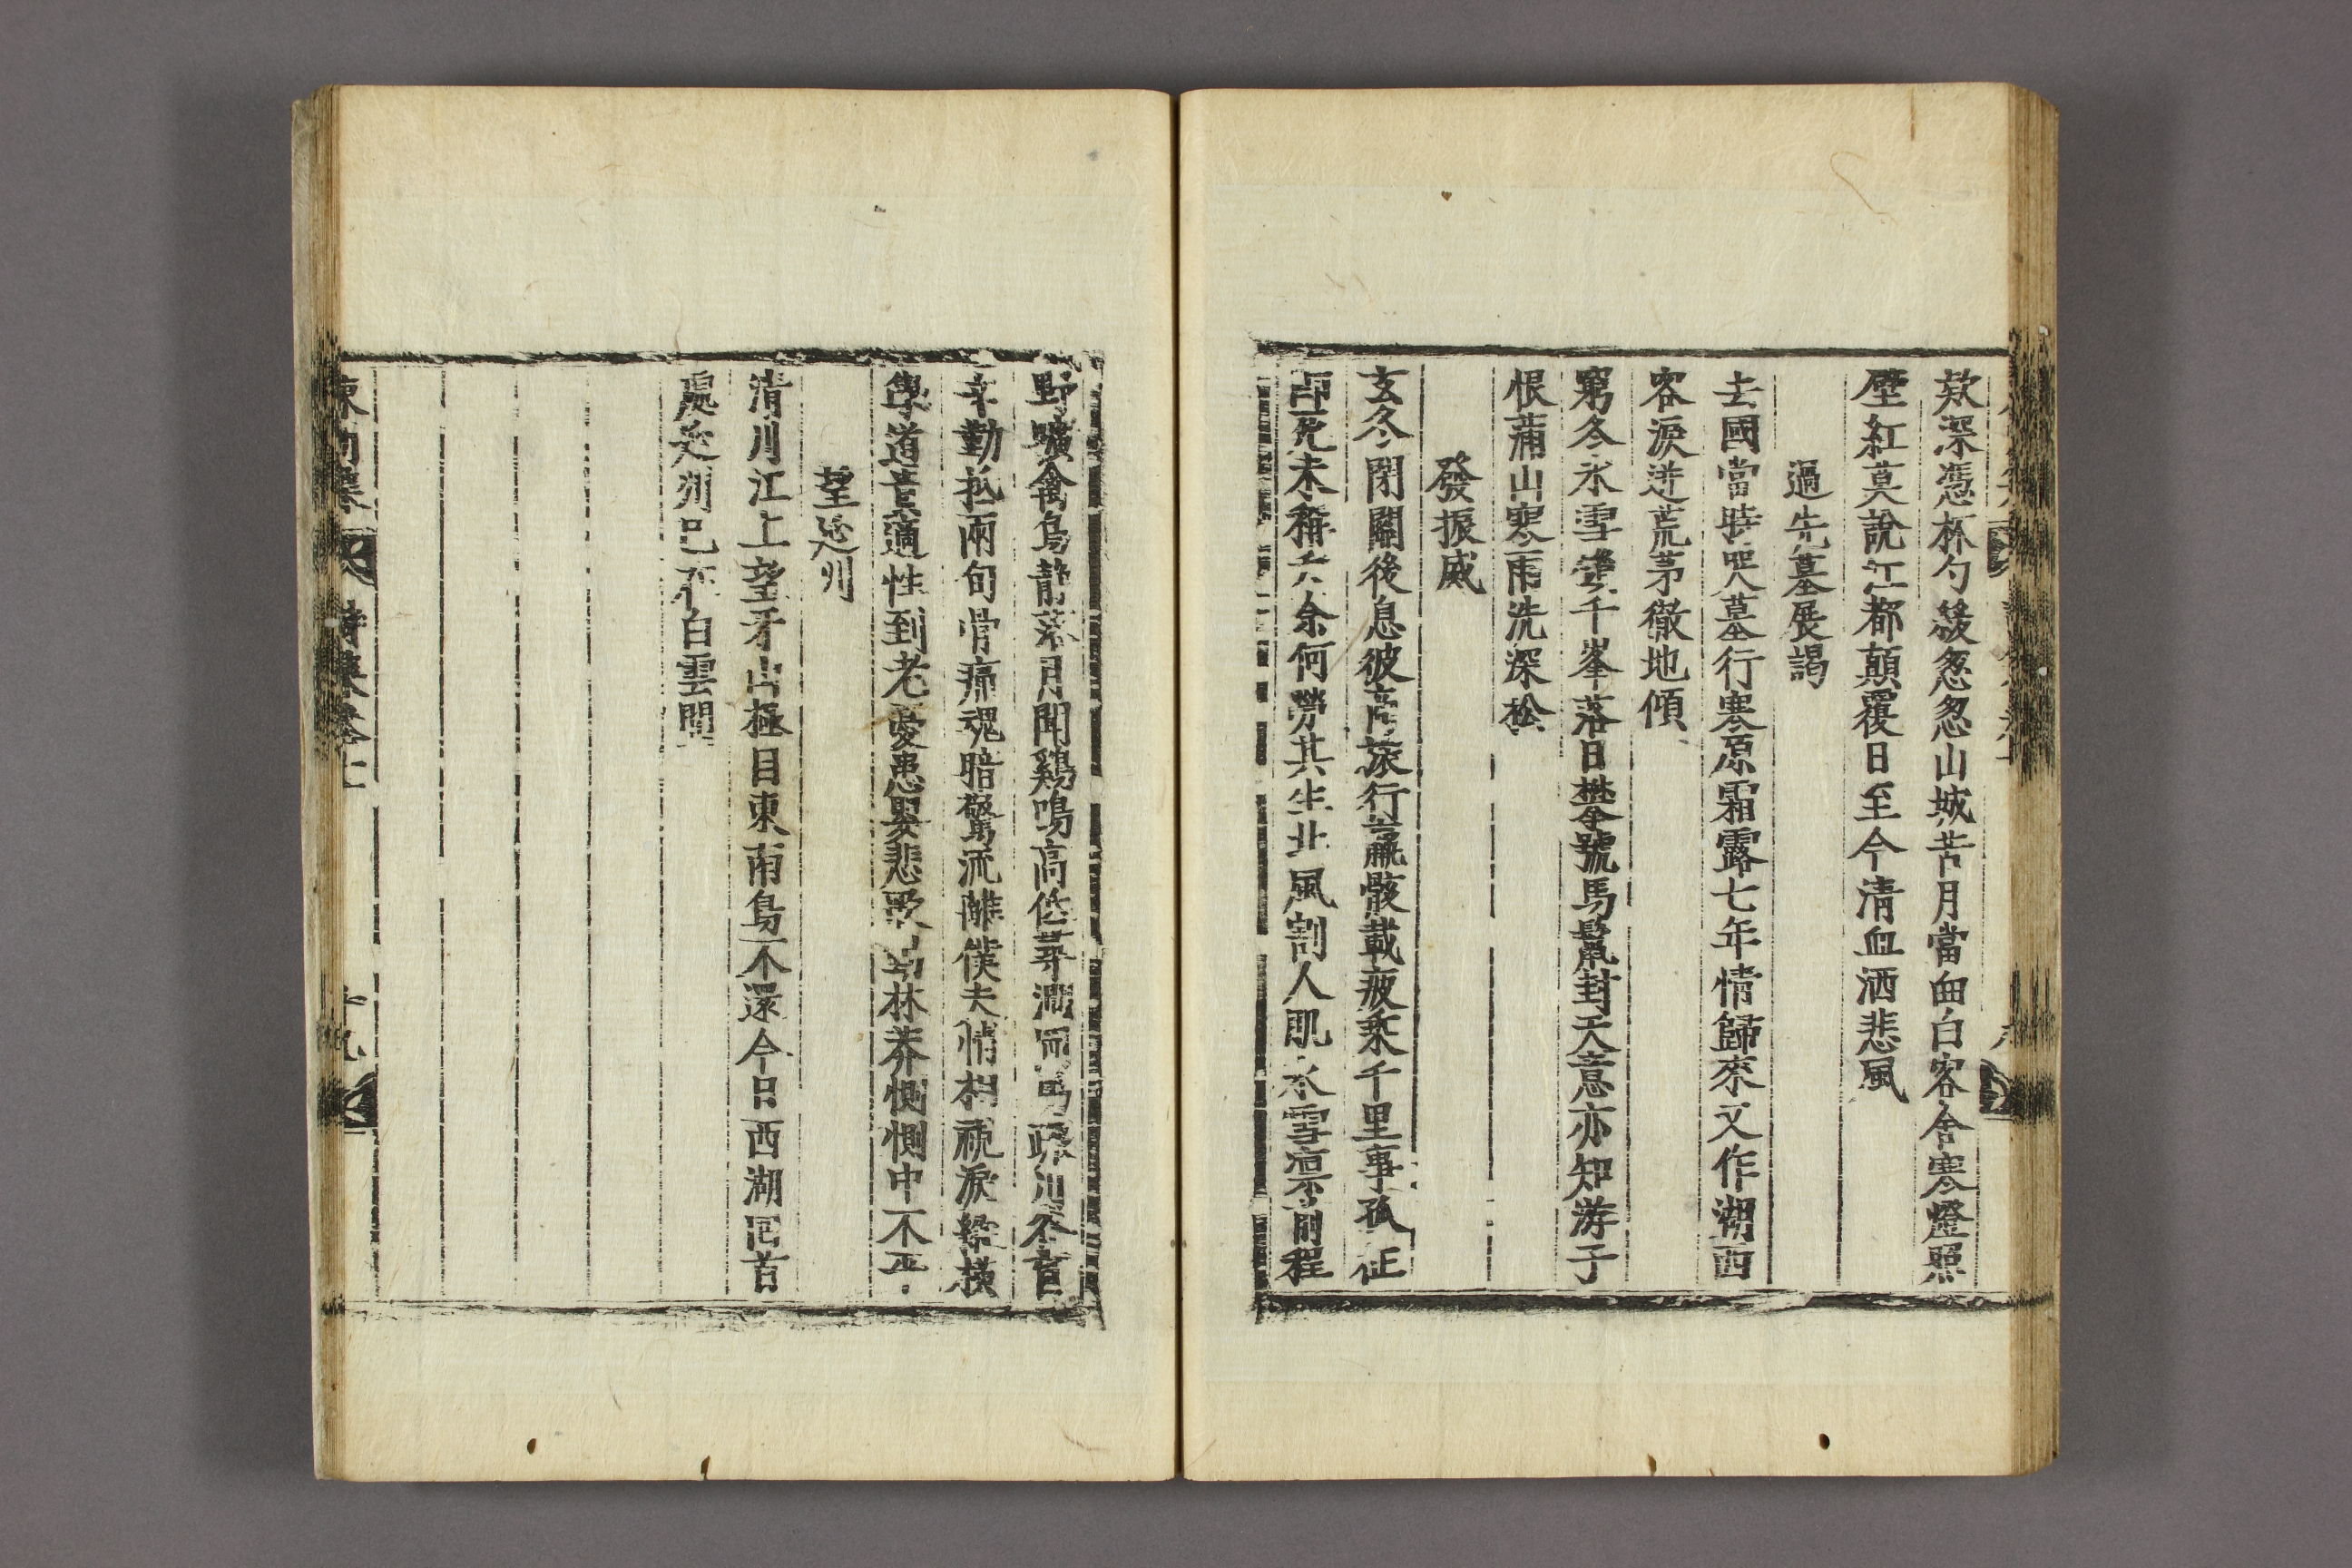 欵深憑杯勺緩忽忽山城苦月當曲白客舍寒燈照
壁紅莫說江都顛覆日至今清血洒悲風
過先墓展謁
去國當時哭墓行寒原霜露七年情歸來又作湖西
客淚迸荒茅徹地傾
窮冬氷雪變千峯落日攀號馬鬣封天意亦知游子
恨蒲山寒雨洗深松
發振威
玄冬閉關後息彼商旅行羸骸載疲乘千里事孤征
未稱 余何勞其生北風割人肌氷雪凉前程
野曠禽鳥静落月聞鷄鳴高低莽澗 馬疏 不
辛勤抵兩旬骨痛魂暗驚流離僕夫悄相視淚縱橫
學道 適性到老憂患嬰悲歌 林莽惻惻中不平
望延州
清川江上望牙山極目東南鳥不還今日西湖回首
處延州已在白雲間
東 集
詩集卷 
十九